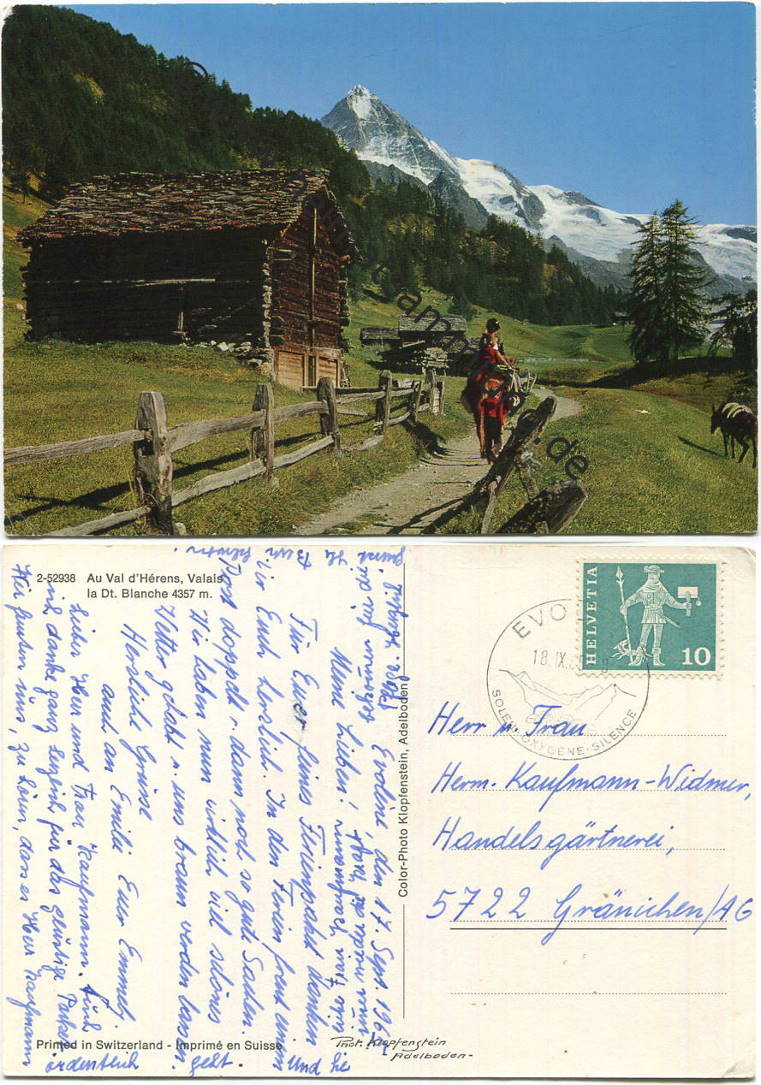 2-52938 Au Val d'Hérens, Valais
la Dt. Blanche 4357 m.
EVO
18.IX.
SOLEIL·OXYGÈNE·SILENCE
HELVETIA
10
Herr u. Frau
Herm. Kaufmann-Widmer,
Handelsgärtnerei,
5722 Gränichen/AG
Color-Photo Klopfenstein, Adelboden
Phot. Klopfenstein
Adelboden-
Printed in Switzerland - Imprimé en Suisse
Evolène, den 17. Sept. 196
Meine Lieben!
Für Euer feines Ferienpaket danken
wir Euch herzlich. In den Ferien freut einen
Post doppelt u. dann noch so gute Sachen.
Wir haben nun wirklich viel schönes
Wetter gehabt u. uns braun werden lassen.
Herzliche Grüsse
auch an Emilie Euer Emmely
Lieber Herr und Frau Kaufmann. Auch
ich danke ganz herzlich für das günstige Paket
Wir freuten uns, zu hören, dass es Herr Kaufmann
ordentlich geht.